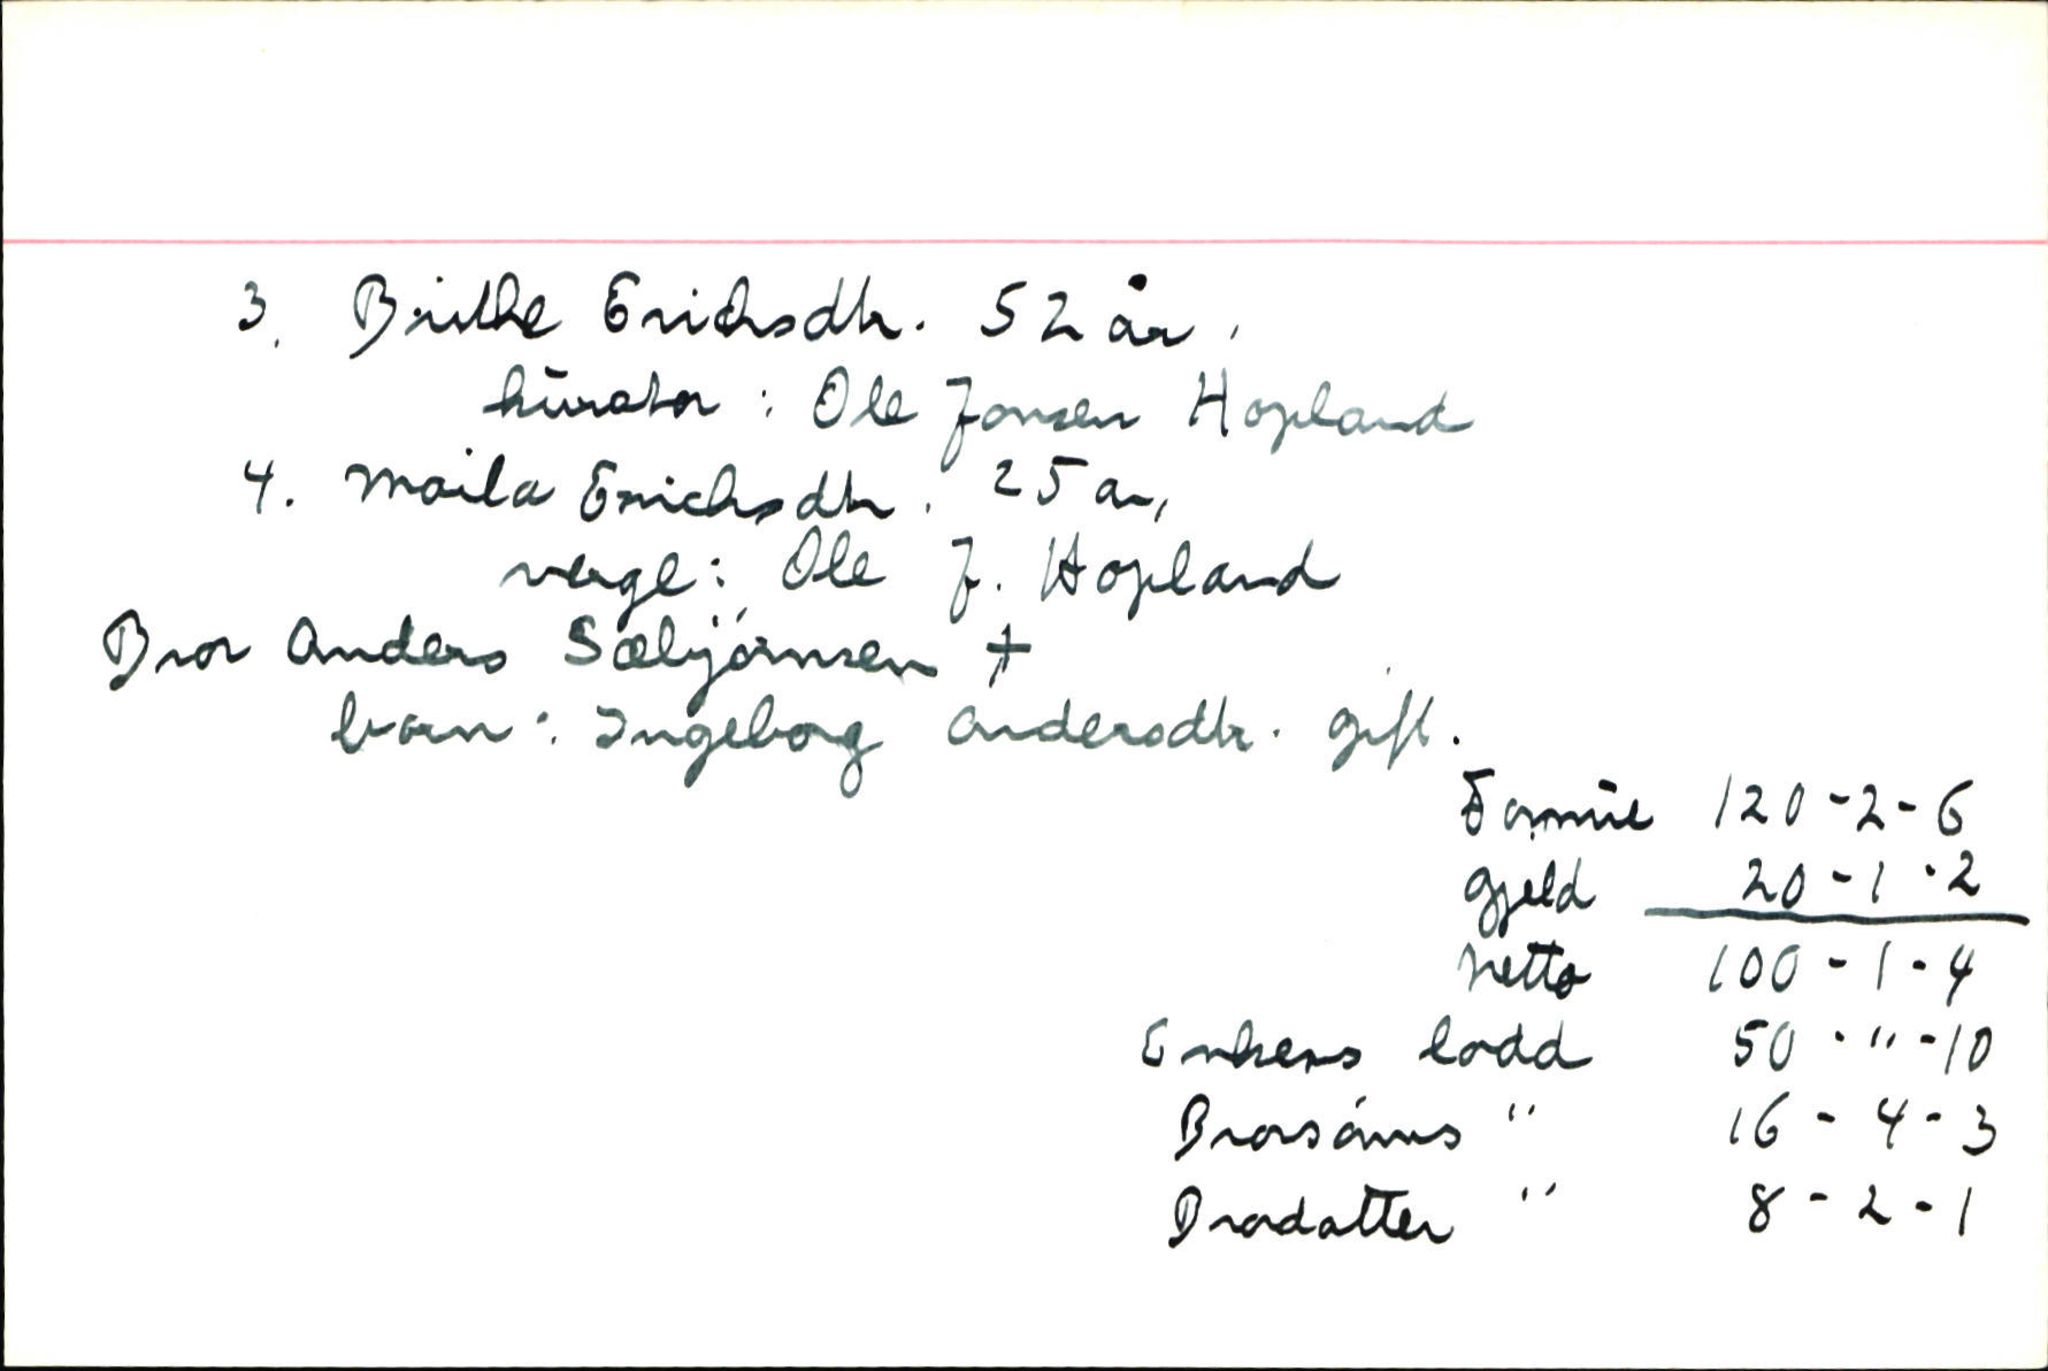 3. Brithe Erichsdtr. 52 år,
kurator: Ole Jonsen Hopland
4. Maila Erichsdtr. 25 år,
verge: Ole J. Hopland
Bror Anders Sæbjörnsen †
barn: Ingeborg Andersdtr. gift.
Formue 120-2-6
Gjeld 20-1-2
Netto 100-1-4
Enkens lodd 50-"-10
Brorsöns " 16-4-3
Brordatter " 8-2-1